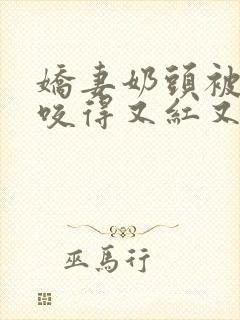 嬌妻奶頭被
咬得又紅又
巫馬行